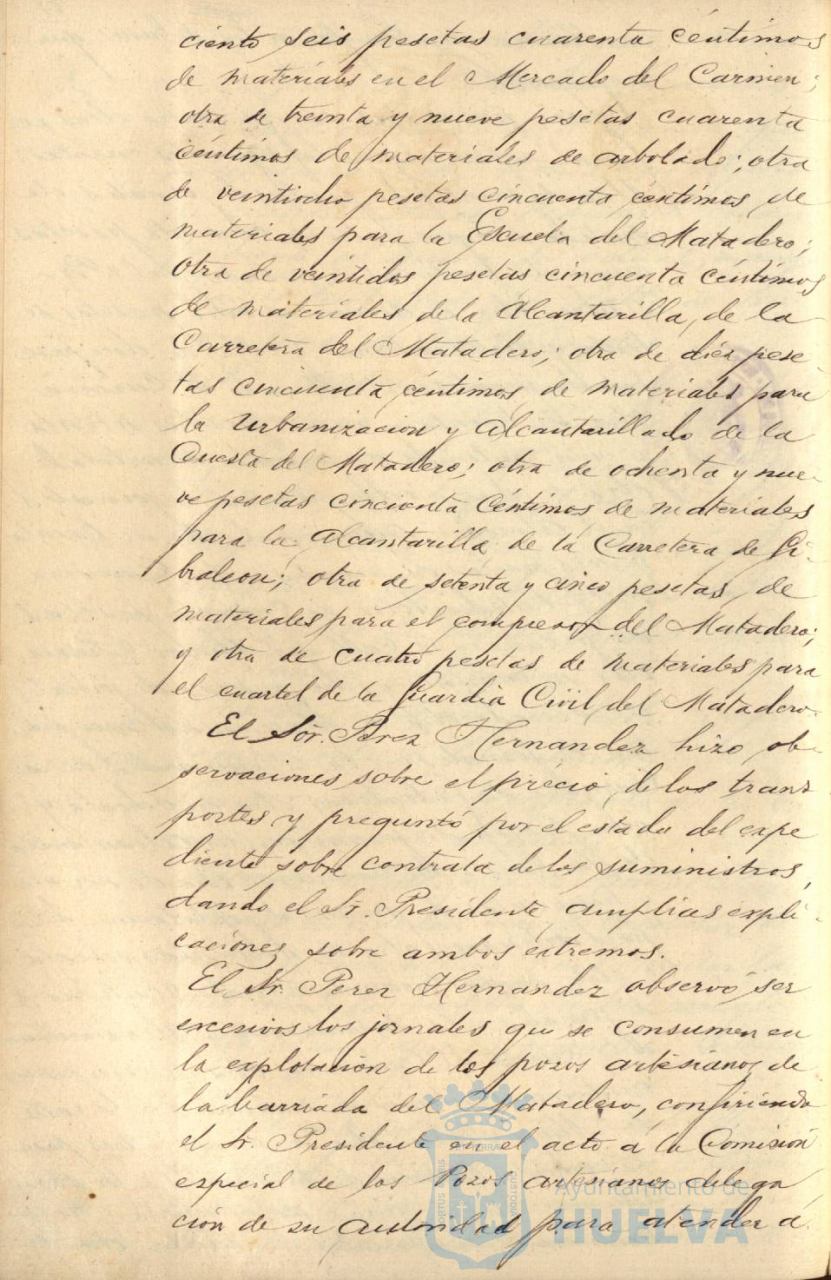 ciento seis pesetas cuarenta céntimos
de materiales en el Mercado del Carmen;
otra de treinta y nueve pesetas cuarenta
céntimos de materiales de arbolado; otra
de veintiocho pesetas cincuenta centimos, de
materiales para la Escuela del Matadero;
otra de veintidos pesetas cincuenta céntimos
de materiales de la Alcantarilla, de la
Carretera del Matadero; otra de diez pese
tas cincuenta céntimos, de materiales para
la urbanizacion y Alcantarillado de la
Cuesta del Matadero; otra de ochenta y nue-
ve pesetas cincienta céntimos de materiales
para la Alcantarilla de la Carretera de Gi-
braleon; otra de setenta y cinco pesetas, de
materiales para el compresor del Matadero;
y otra de cuatro pesetas de materiales para
el cuartel de la Guardia Civil del Matadero.
El Sor. Perez Hernandez hizo ob-
servaciones sobre el précio, de los trans
portes y preguntó por el estado del expe
diente sobre contrata de los suministros,
dando el Sr. Presidente amplias expli-
caciones sobre ambos extremos.
El Sr. Perez Hernandez observó ser
excesivos los jornales que se consumen en
la explotacion de los pozos artesianos de
la barriada del Matadero, confiriendo
el Sr. Presidente en el acto á la Comisión
especial de los Pozos artesianos delega
ción de su autoridad para atender á
Ayuntamiento de
HUELVA